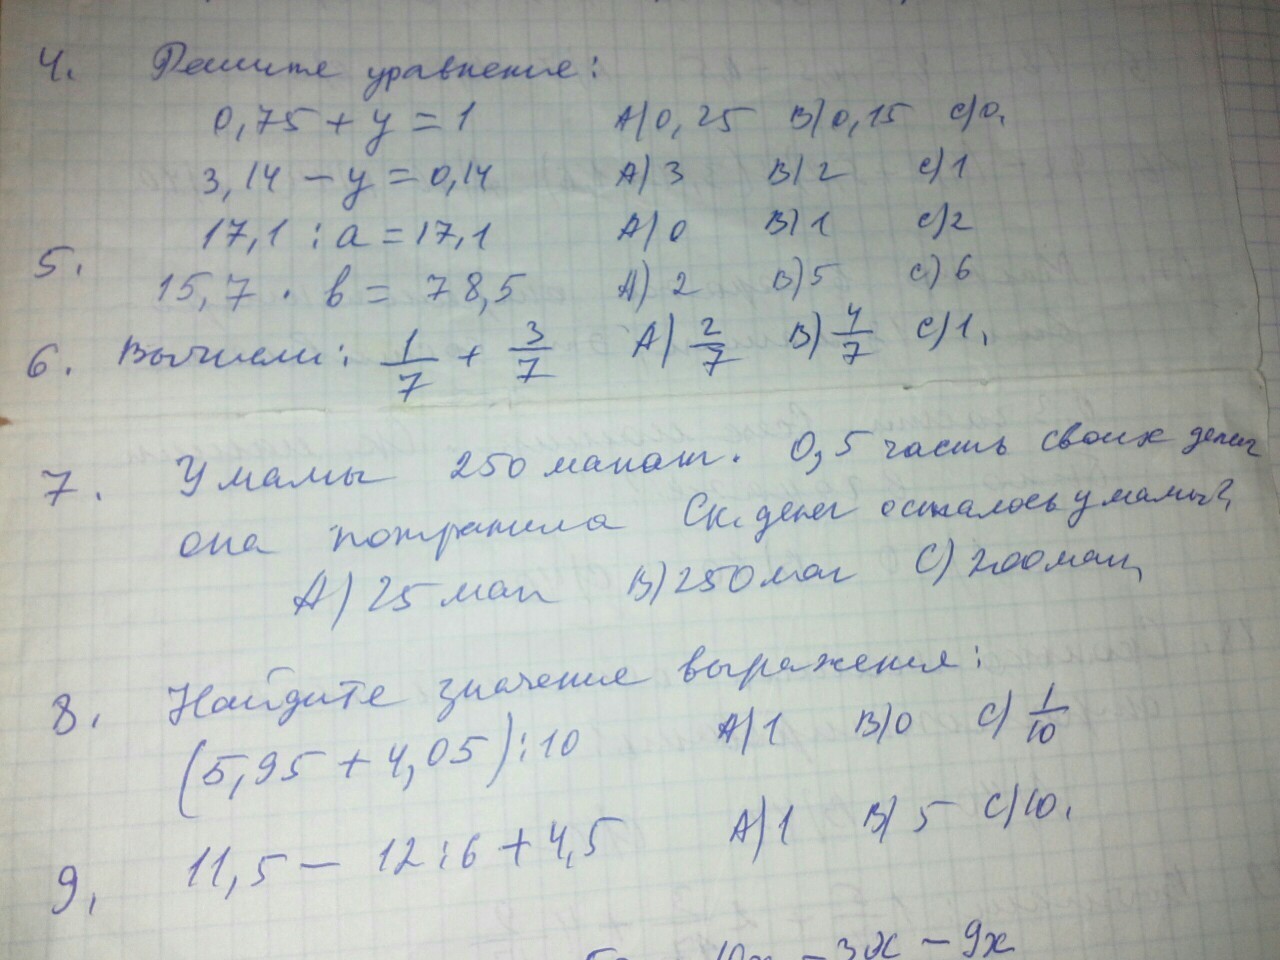 4. Решите уравнение:
0,75 + y = 1 A) 0,25 B) 0,15 C) 0.
3,14 - y = 0,14 A) 3 B) 2 C) 1
17,1 : a = 17,1 A) 0 B) 1 C) 2
5. 15,7 · b = 78,5 A) 2 B) 5 C) 6
6. Вычисли: 1/7 + 3/7 A) 2/7 B) 4/7 C) 1.
7. У мамы 250 манат. 0,5 часть своих денег
она потратила Ск. денег осталось у мамы?
A) 25 ман B) 250 ман C) 200 ман
8. Найдите значение выражения:
(5,95 + 4,05) : 10 A) 1 B) 0 C) 1/10
9. 11,5 - 12 : 6 + 4,5 A) 1 B) 5 C) 10.
- 3x - 9x